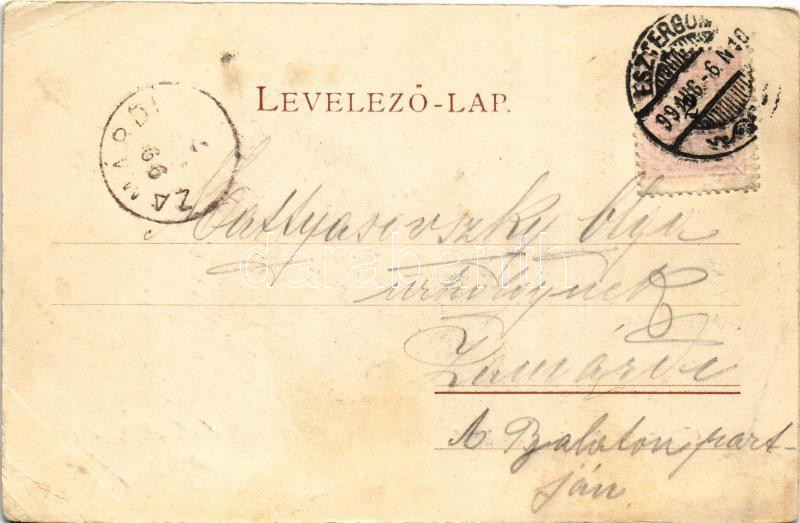 ESZTERGOM
99 AUG. 6. N10
LEVELEZŐ-LAP.
ZAMÁRDI
99
Mattyasovszky Olga
úrhölgynek
Zamárdi
A Balaton part-
ján
darabanth